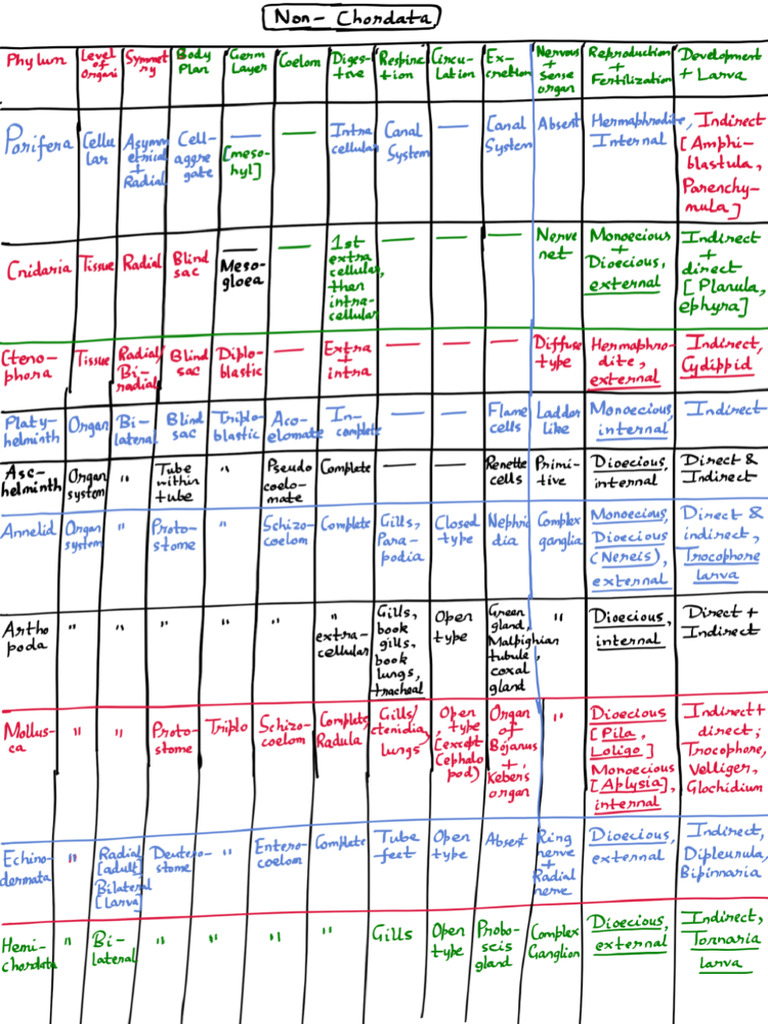 Non-Chordata
Phylum | Level of Organi | Symmetry | Body Plan | Germ Layer | Coelom | Digestive | Respiration | Circulation | Excretion | Nervous + Sense organ | Reproduction + Fertilization | Development + Larva
Porifera | Cellular | Asymmetrical + Radial | Cell-aggregate | — [mesohyl] | — | Intracellular | Canal System | — | Canal System | Absent | Hermaphrodite, Internal | Indirect [Amphi-blastula, Parenchy-mula]
Cnidaria | Tissue | Radial | Blind sac | — Meso-gloea | — | 1st extra cellular, then intra-cellular | — | — | — | Nerve net | Monoecious + Dioecious, external | Indirect + direct [Planula, ephyra]
Cteno-phora | Tissue | Radial/Bi-radial | Blind sac | Diplo-blastic | — | Extra + intra | — | — | — | Diffuse type | Hermaphro-dite, external | Indirect, Cydippid
Platy-helminth | Organ | Bi-lateral | Blind sac | Triplo-blastic | Aco-elomate | In-complete | — | — | Flame cells | Ladder like | Monoecious, internal | Indirect
Asc-helminth | Organ system | " | Tube within tube | " | Pseudo coelo-mate | Complete | — | — | Renette cells | Primi-tive | Dioecious, internal | Direct & Indirect
Annelid | Organ system | " | Proto-stome | " | Schizo-coelom | Complete | Gills, Para-podia | Closed type | Nephri dia | Complex ganglia | Monoecious, Dioecious (Nereis), external | Direct & indirect, Trocophone larva
Artho poda | " | " | " | " | " | " extra-cellular | Gills, book gills, book lungs, tracheal | Open type | Green gland, Malpighian tubule, coxal gland | " | Dioecious, internal | Direct + Indirect
Mollus-ca | " | " | Proto-stome | Triplo | Schizo-coelom | Complete, Radula | Gills/ctenidia, lungs | Open, type [except Cephalo pod) | Organ of Bojanus + Kebers organ | " | Dioecious [Pila, Loligo] Monoecious [Aplysia], internal | Indirect + direct; Trocophone, Velliger, Glochidium
Echino-dermata | " | Radial [adult] Bilateral [larva] | Deutero-stome | " | Entero-coelom | Complete | Tube feet | Open type | Absent | Ring nerve + Radial nerve | Dioecious, external | Indirect, Dipleurula, Bipinnaria
Hemi-chordata | " | Bi-lateral | " | " | " | " | Gills | Open type | Probo-scis gland | Complex Ganglion | Dioecious, external | Indirect, Tornaria larva